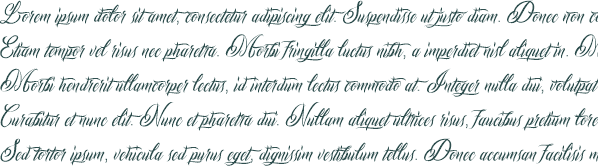 Lorem ipsum dolor sit amet, consectetur adipiscing elit. Suspendisse ut justo diam. Donec non co
Etiam tempor vel risus nec pharetra. Morbi fringilla luctus nibh, a imperdiet nisl aliquet in.
Morbi hendrerit ullamcorper lectus, id interdum lectus commodo at. Integer nulla dui, volutpat
Curabitur et nunc elit. Nunc et pharetra dui. Nullam aliquet ultrices risus, faucibus pretium lore
Sed tortor ipsum, vehicula sed purus eget, dignissim vestibulum tellus. Donec accumsan facilisis m